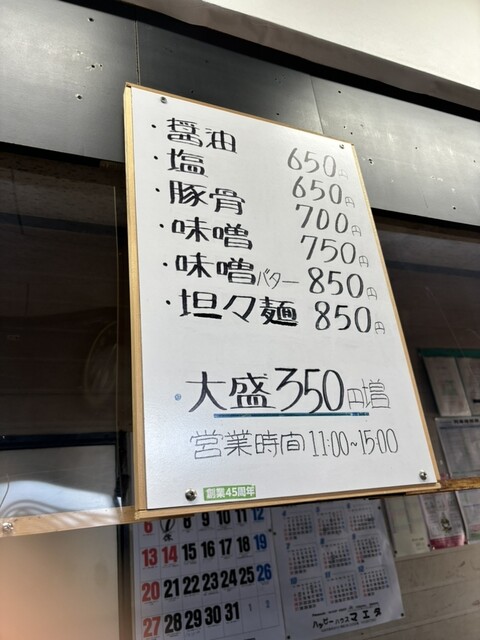 ・醤油 650円
・塩 650円
・豚骨 700円
・味噌 750円
・味噌バター 850円
・坦々麺 850円
・大盛350円増
営業時間11:00~15:00
創業45周年
6 7 8 9 10 11 12
13 14 15 16 17 18 19
20 21 22 23 24 25 26
27 28 29 30 31
ハッピーハウス マエダ